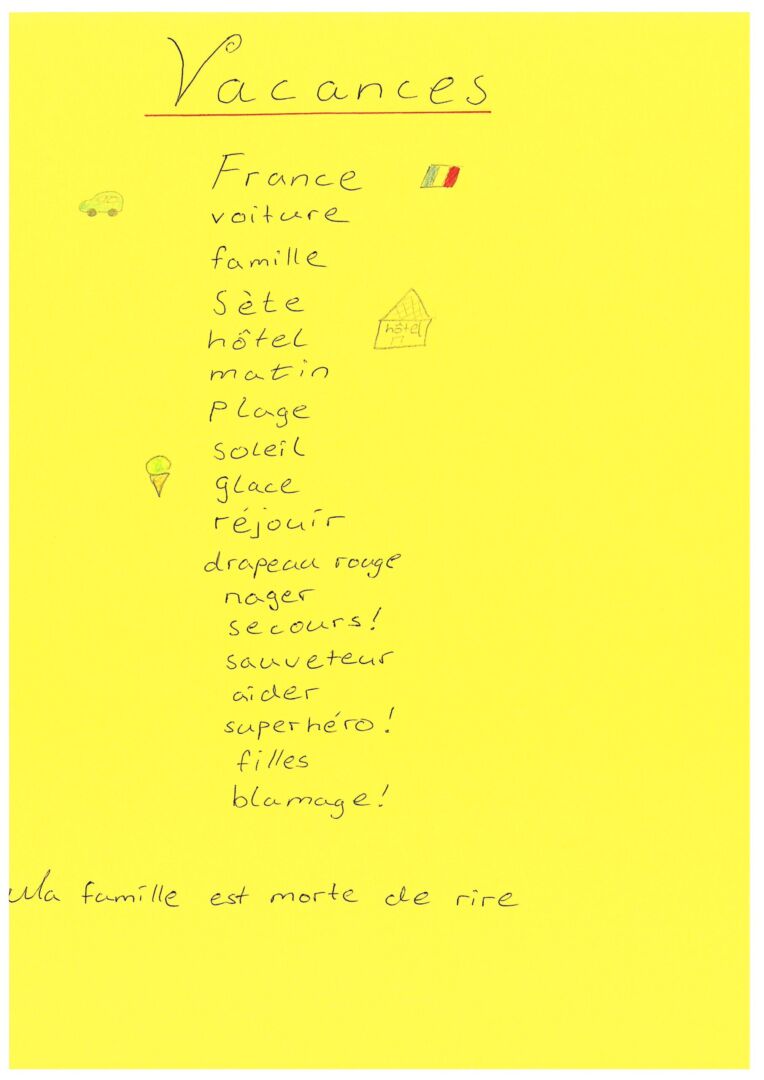 Vacances
France
voiture
famille
Sète
hôtel
hôtel
matin
plage
soleil
glace
réjouir
drapeau rouge
nager
secours!
sauveteur
aider
superhéro!
filles
blamage!
Ma famille est morte de rire